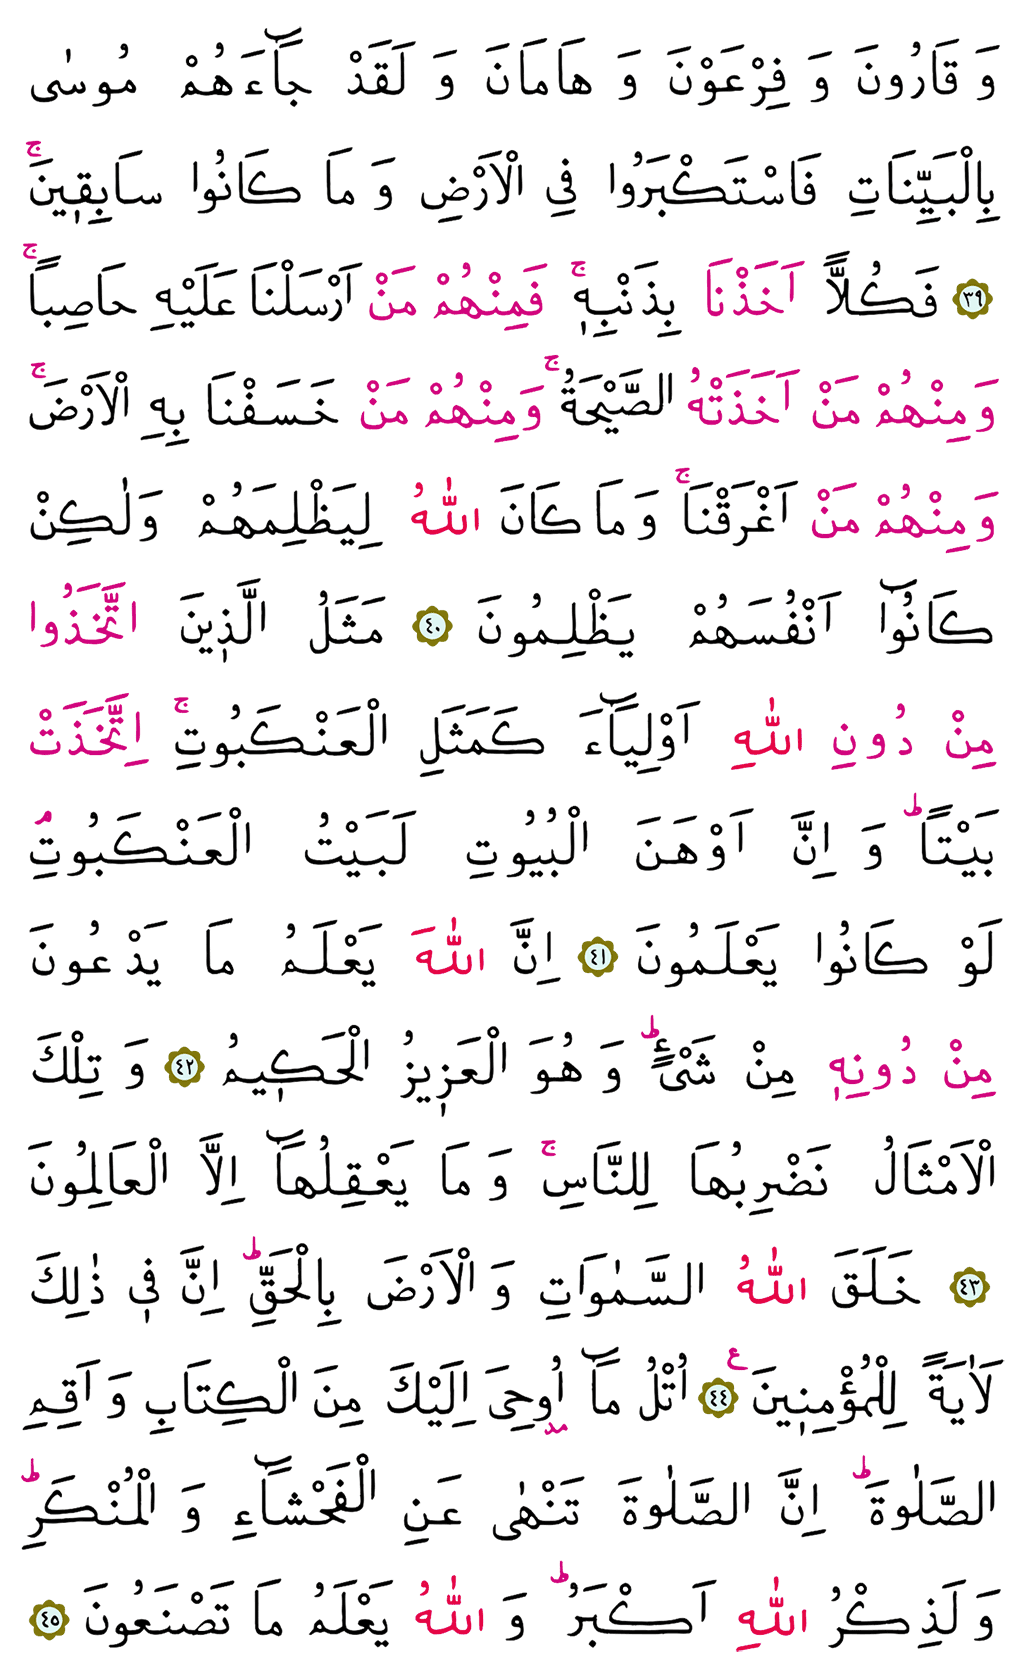 وَ قَارُونَ وَ فِرْعَوْنَ وَ هَامَانَ وَ لَقَدْ جَٓاءَهُمْ مُوسٰى
بِالْبَيِّنَاتِ فَاسْتَكْبَرُوا فِي الْاَرْضِ وَ مَا كَانُوا سَابِقٖينَۚ
﴿٣٩﴾ فَكُلاًّ اَخَذْنَا بِذَنْبِهٖۚ فَمِنْهُمْ مَنْ اَرْسَلْنَا عَلَيْهِ حَاصِباًۚ
وَمِنْهُمْ مَنْ اَخَذَتْهُ الصَّيْحَةُۚ وَمِنْهُمْ مَنْ خَسَفْنَا بِهِ الْاَرْضَۚ
وَمِنْهُمْ مَنْ اَغْرَقْنَاۚ وَمَا كَانَ اللّٰهُ لِيَظْلِمَهُمْ وَلٰكِنْ
كَانُٓوا اَنْفُسَهُمْ يَظْلِمُونَ ﴿٤٠﴾ مَثَلُ الَّذٖينَ اتَّخَذُوا
مِنْ دُونِ اللّٰهِ اَوْلِيَٓاءَ كَمَثَلِ الْعَنْكَبُوتِۚ اِتَّخَذَتْ
بَيْتاًؕ وَ اِنَّ اَوْهَنَ الْبُيُوتِ لَبَيْتُ الْعَنْكَبُوتِۘ
لَوْ كَانُوا يَعْلَمُونَ ﴿٤١﴾ اِنَّ اللّٰهَ يَعْلَمُ مَا يَدْعُونَ
مِنْ دُونِهٖ مِنْ شَیْءٍؕ وَ هُوَ الْعَزٖيزُ الْحَكٖيمُ ﴿٤٢﴾ وَ تِلْكَ
الْاَمْثَالُ نَضْرِبُهَا لِلنَّاسِۚ وَ مَا يَعْقِلُهَٓا اِلَّا الْعَالِمُونَ
﴿٤٣﴾ خَلَقَ اللّٰهُ السَّمٰوَاتِ وَ الْاَرْضَ بِالْحَقِّؕ اِنَّ فٖى ذٰلِكَ
لَاٰيَةً لِلْمُؤْمِنٖينَ ﴿٤٤﴾ ع اُتْلُ مَٓا اُو۫حِىَ اِلَيْكَ مِنَ الْكِتَابِ وَ اَقِمِ
الصَّلٰوةَؕ اِنَّ الصَّلٰوةَ تَنْهٰى عَنِ الْفَحْشَٓاءِ وَ الْمُنْكَرِؕ
وَ لَذِكْرُ اللّٰهِ اَكْبَرُؕ وَ اللّٰهُ يَعْلَمُ مَا تَصْنَعُونَ ﴿٤٥﴾